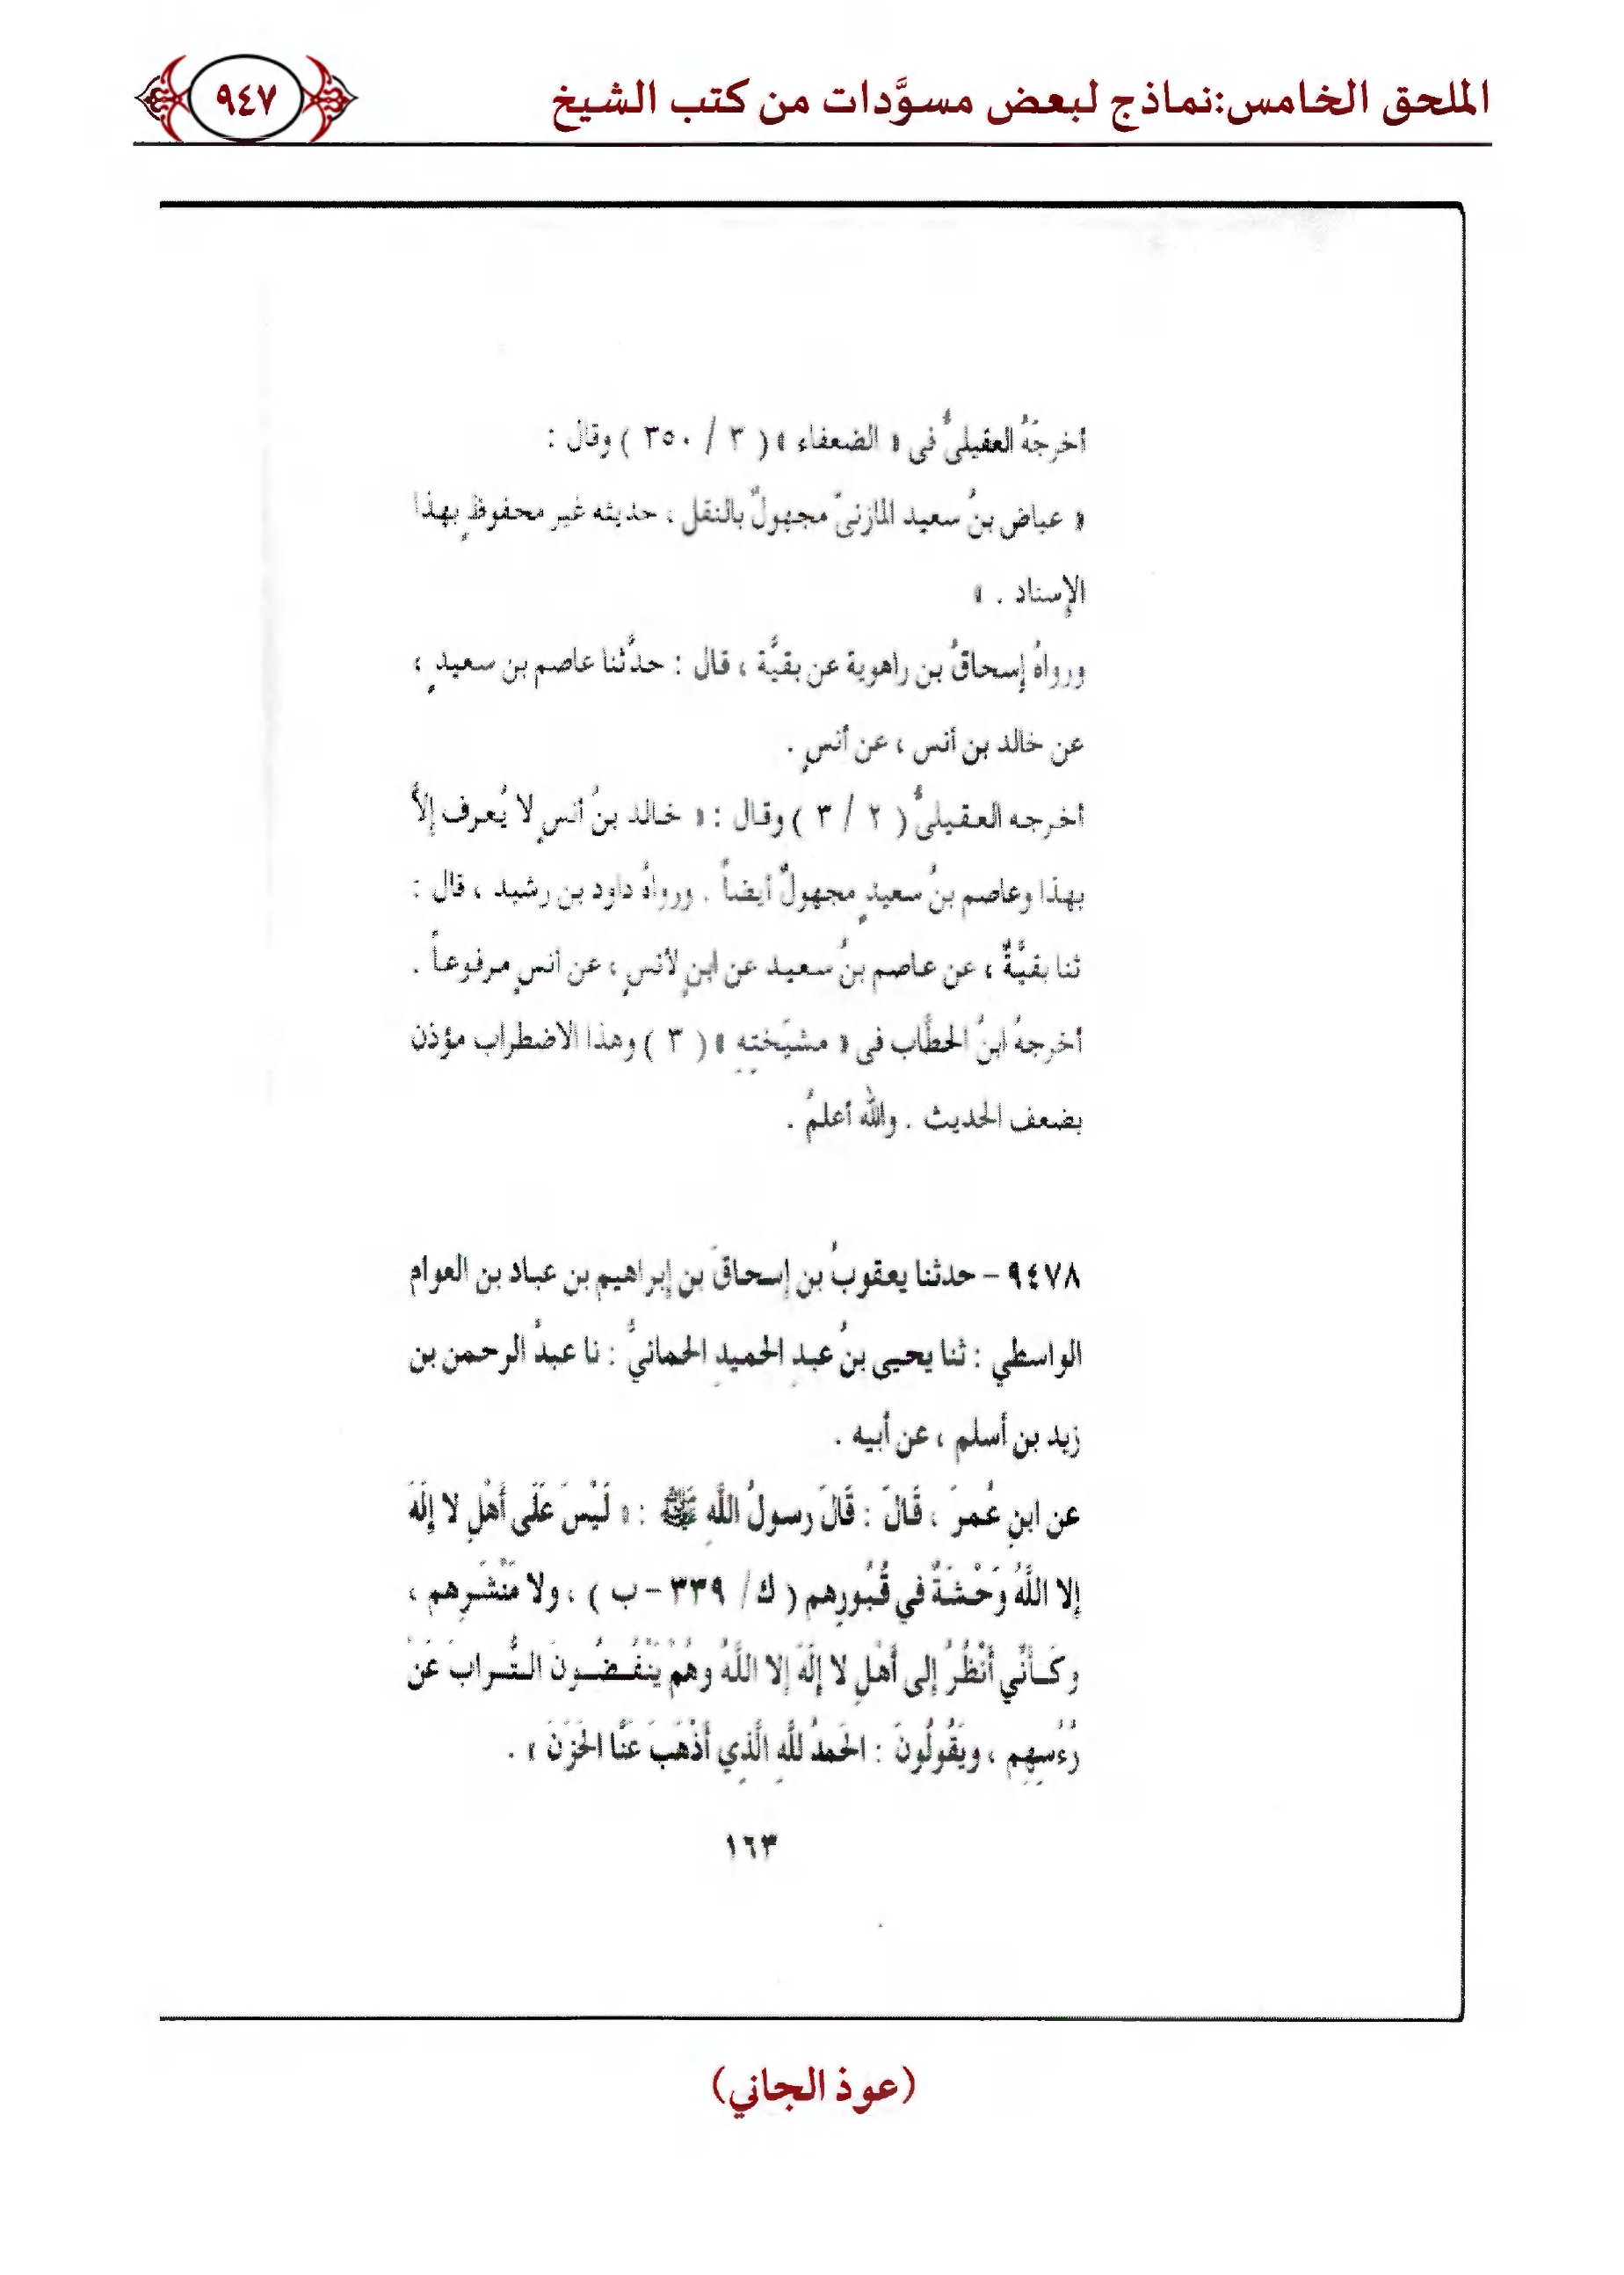 الملحق الخامس:نماذج لبعض مسوَّدات من كتب الشيخ
٩٤٧
أخرجَهُ العقيلىُّ فى « الضعفاء » ( ٣ / ٣٥٠ ) وقال :
« عياض بنُ سعيد المازنىّ مجهولٌ بالنقل ، حديثه غير محفوظٍ بهذا
الإسناد . »
ورواهُ إسحاقُ بن راهوية عن بقيَّة ، قال : حدَّثنا عاصم بن سعيدٍ ،
عن خالد بن أنس ، عن أنسٍ .
أخرجه العقيلىُّ ( ٢ / ٣ ) وقال : « خالد بنُ أنسٍ لا يُعرف إلاَّ
بهذا وعاصم بنُ سعيدٍ مجهولٌ أيضاً . ورواهُ داود بن رشيد ، قال :
ثنا بقيَّةٌ ، عن عاصم بنُ سعيد عن ابنٍ لأنسٍ ، عن أنسٍ مرفوعاً .
أخرجهُ ابنُ الحطَّاب فى « مشيَختِهِ » ( ٣ ) وهذا الاضطراب مؤذن
بضعف الحديث . والله أعلمُ .
٩٤٧٨ – حدثنا يعقوبُ بن إسحاقَ بن إبراهيم بن عباد بن العوام
الواسطي : ثنا يحيى بنُ عبدِ الحميدِ الحمانيُّ : نا عبدُ الرحمن بن
زيد بن أسلم ، عن أبيه .
عن ابنِ عُمرَ ، قَالَ : قَالَ رسولُ اللَّهِ ﷺ : « لَيْسَ عَلَى أَهْلِ لا إِلَهَ
إلا اللَّهُ وَحْشَةٌ في قُبُورِهم ( ك/ ٣٣٩ – ب ) ، ولا مَنْشَرِهم ،
وكَأنِّي أَنْظُرُ إلى أَهْلِ لا إِلَهَ إلا اللَّهُ وهُمْ يَنْفُضُونَ التُّرابَ عَنْ
رُءُسِهِم ، ويَقُولُونَ : الحَمدُ للَّهِ الَّذِي أَذْهَبَ عَنَّا الحَزَنَ » .
١٦٣
(عوذ الجاني)